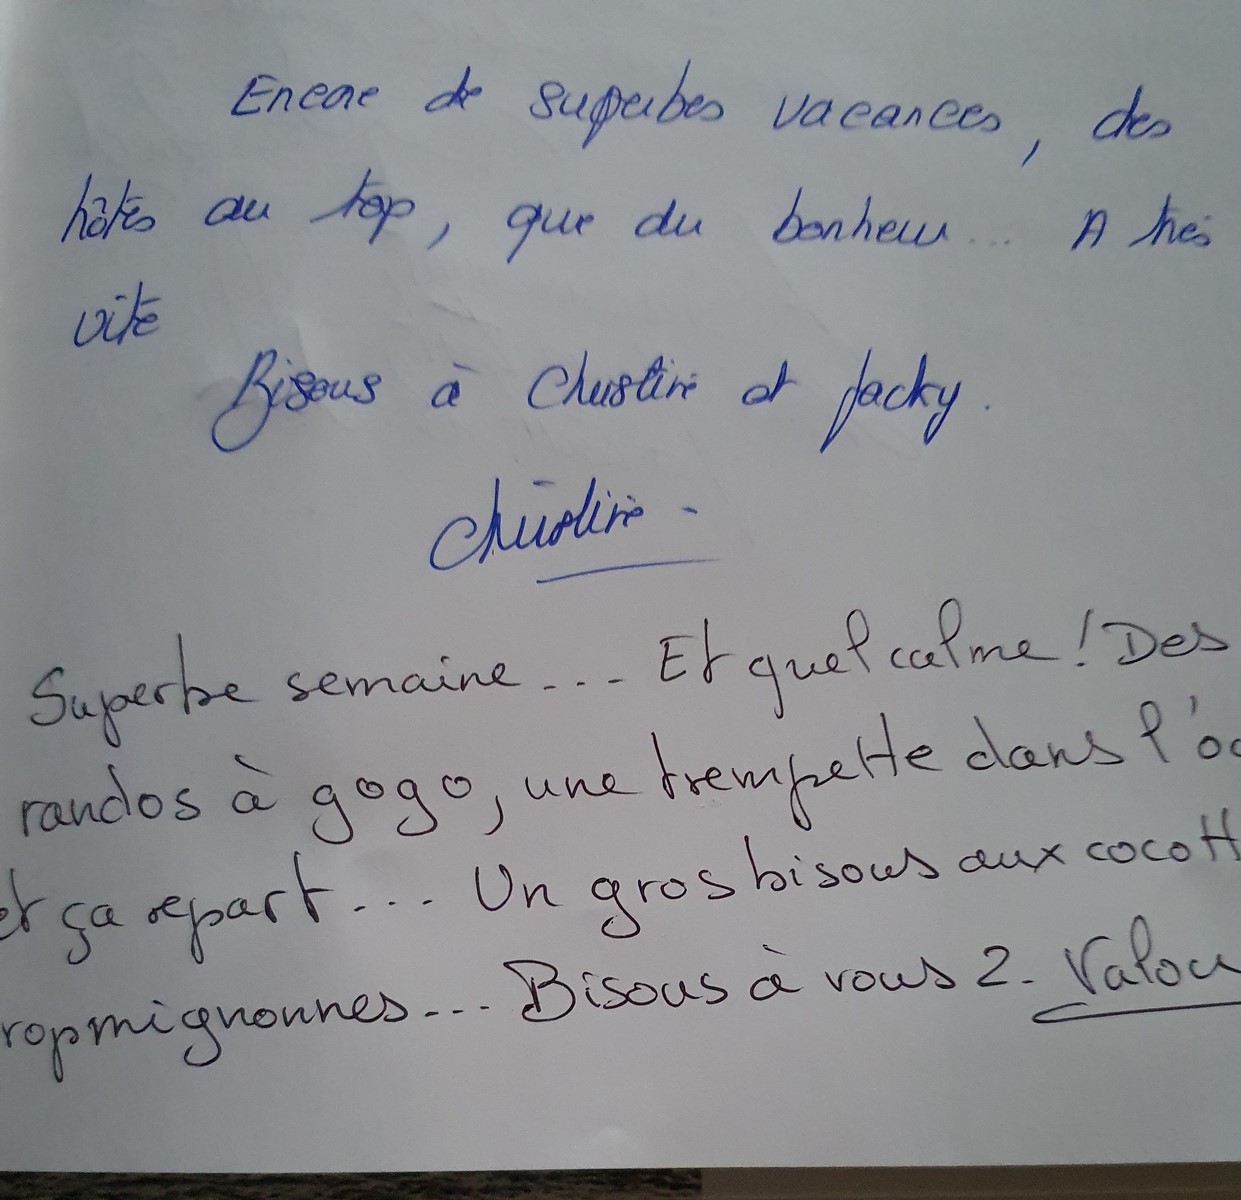 Encore de superbes vacances, des
hôtes au top, que du bonheur... A très
vite
Bisous à Christine et Jacky.
Christine.
Superbe semaine... Et quel calme ! Des
randos à gogo, une trempette dans l'oc
et ça repart... Un gros bisous aux cocott
rop mignonnes... Bisous à vous 2. Valou